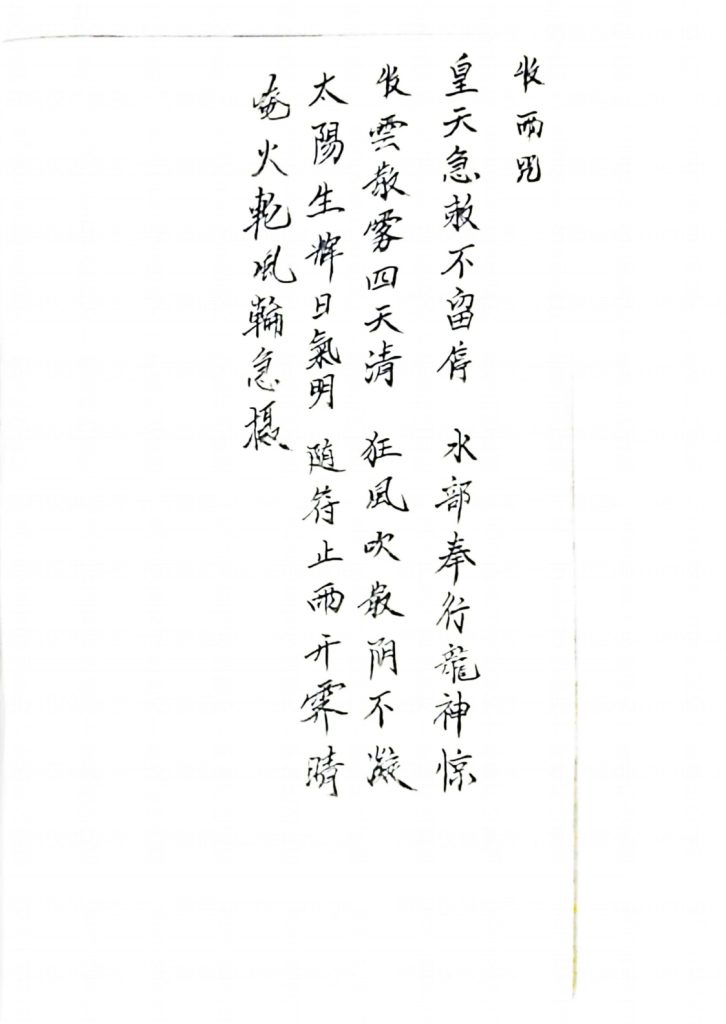 收雨咒
皇天急敕不留停 水部奉行龍神惊
收雲散雾四天清 狂風吹散阴不凝
太陽生輝日氣明 随符止雨开霁晴
火乾風輪急摄